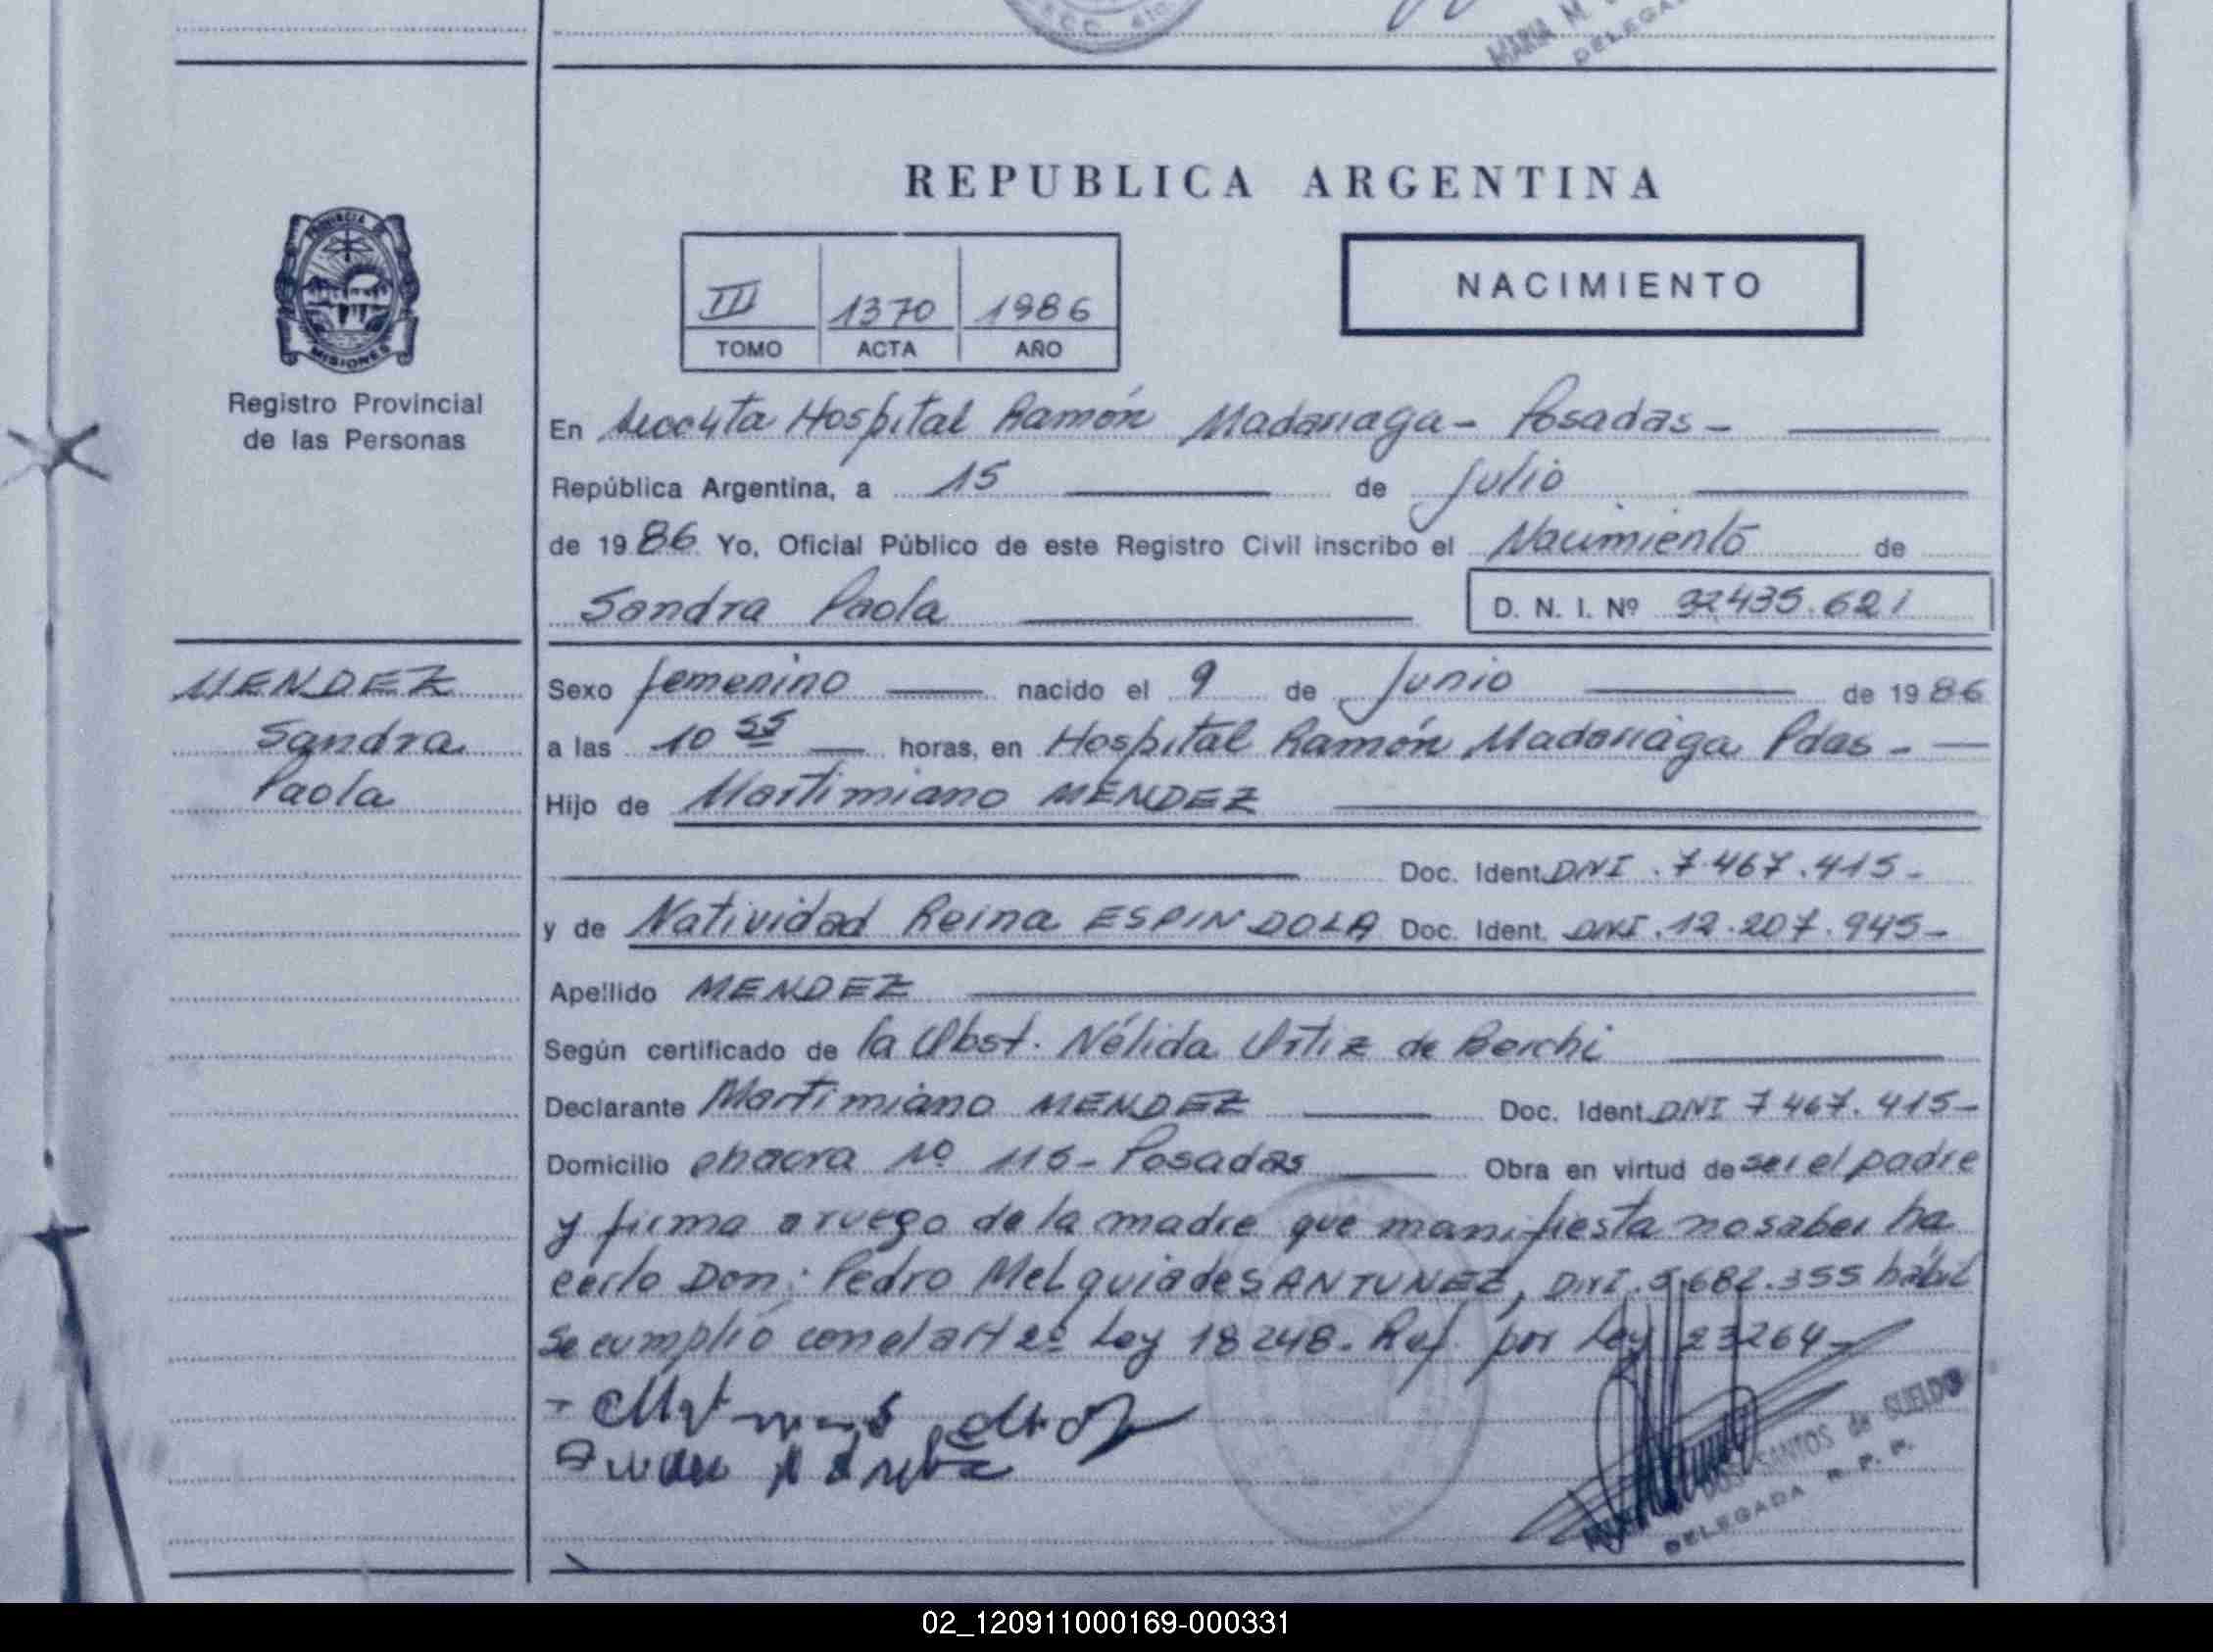 REPUBLICA ARGENTINA
NACIMIENTO
III 1370 1986
TOMO ACTA AÑO
PROVINCIA DE
MISIONES
Registro Provincial
de las Personas
En Secc 4ta Hospital Ramón Madariaga - Posadas -
República Argentina, a 15 de Julio
de 1986 Yo, Oficial Público de este Registro Civil inscribo el Nacimiento de
Sandra Paola D. N. I. Nº 32.435.621
MENDEZ
Sandra
Paola
Sexo femenino nacido el 9 de Junio de 1986
a las 10 55 horas, en Hospital Ramón Madariaga Pdas -
Hijo de Martimiano MENDEZ
Doc. Ident. DNI . 7.467.415 -
y de Natividad Reina ESPINDOLA Doc. Ident. DNI . 12.207.945 -
Apellido MENDEZ
Según certificado de la Obst. Nélida Ortiz de Berchi
Declarante Martimiano MENDEZ Doc. Ident. DNI 7 467.415 -
Domicilio chacra Nº 116 - Posadas Obra en virtud de ser el padre
y firma a ruego de la madre que manifiesta no saber ha
cerlo Don: Pedro Melquiades ANTUNEZ, DNI . 5.682.355 hábil
Se cumplió con el art 2º Ley 18248. Ref. por Ley 23264 -
DOS SANTOS de SUELDO
DELEGADA R. P. P.
02_120911000169-000331